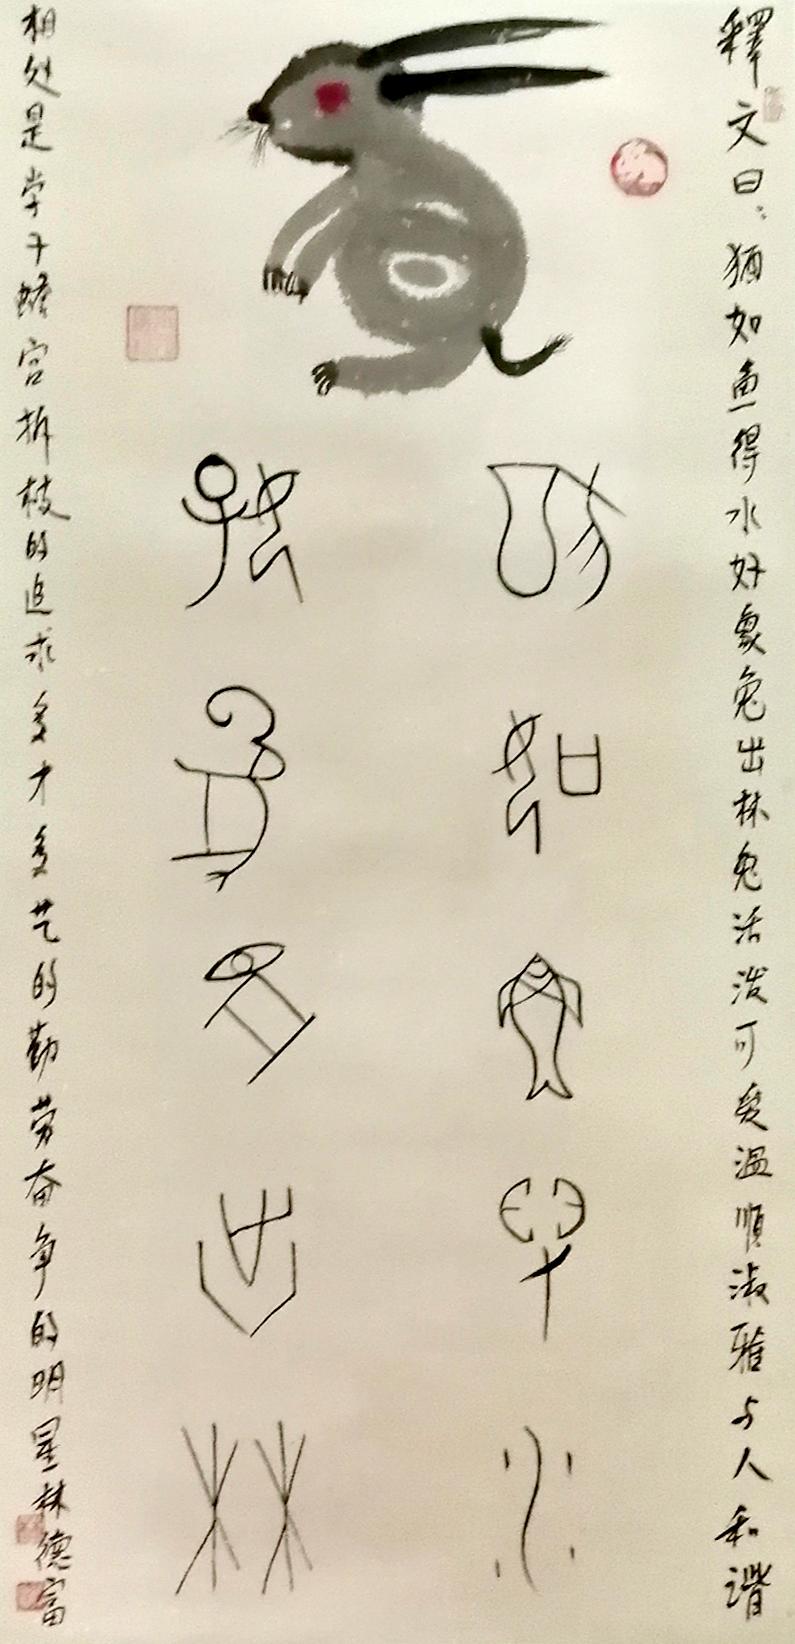 釋文曰：猶如鱼得水好象兔出林兔活泼可爱温順淑雅与人和谐
猶如鱼得水
好象兔出林
相处是学子蟾宫折枝的追求多才多艺的勤劳奋争的明星林德富